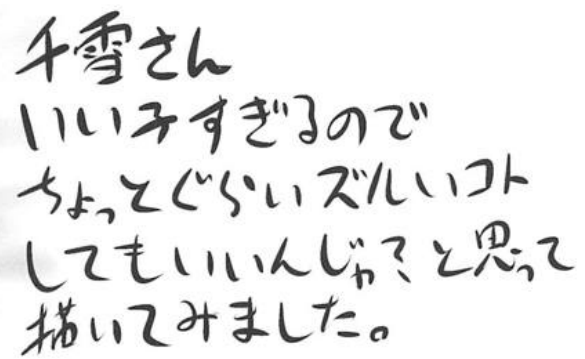 千雪さん
いい子すぎるので
ちょっとぐらいズルいコト
してもいいんじゃ？と思って
描いてみました。